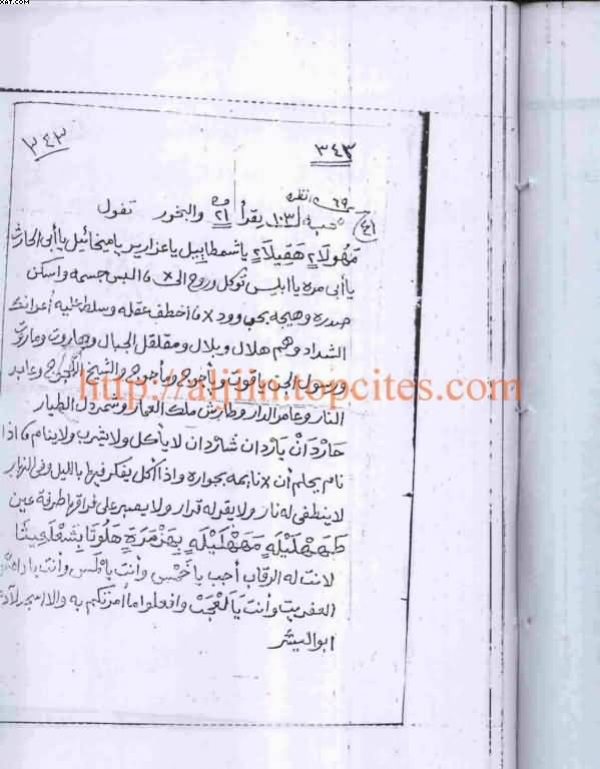 XAT.COM
٣٤٣
٣٤٣
٦٩
٤١ يقرأ ٢١ والبخور تقول
مَهُولَاءٍ هَقِيلَاءٍ يا شمطاييل يا عزازيس يا ميخائيل يا أبى الحارث
يا أبى مره يا ابليس توكل وروح الى × البس جسمه واسكن
صدره وهيجه بحب وود × اخطف عقله وسلط عليه أعوانك
الشداد وهم هلال وبلال ومقلقل الجبال وهاروت وماروت
ورسول الجن ياقوت ويأجوج ومأجوج والشيخ وعابد
النار وعامر الدار وطارش ملك العمار وسمردل الطيار
حَارْدَانْ بَارْدان شاردان لا يأكل ولا يشرب ولا ينام اذا
نام يحلم أن × نايمه بجواره واذا أكل يفكر فيها بالليل وفى النهار
لا ينطفى له نار ولا يقر له قرار ولا يصبر على فراقها طرفة عين
طَهَهْلَيْلَهٍ مَهَهْلَيْلَهٍ هَلُوثَا
لانت له الرقاب أجب يا وأنت وأنت
العفريت وأنت وافعلوا ما أمرتكم به والا
http://aljiin.topcites.com